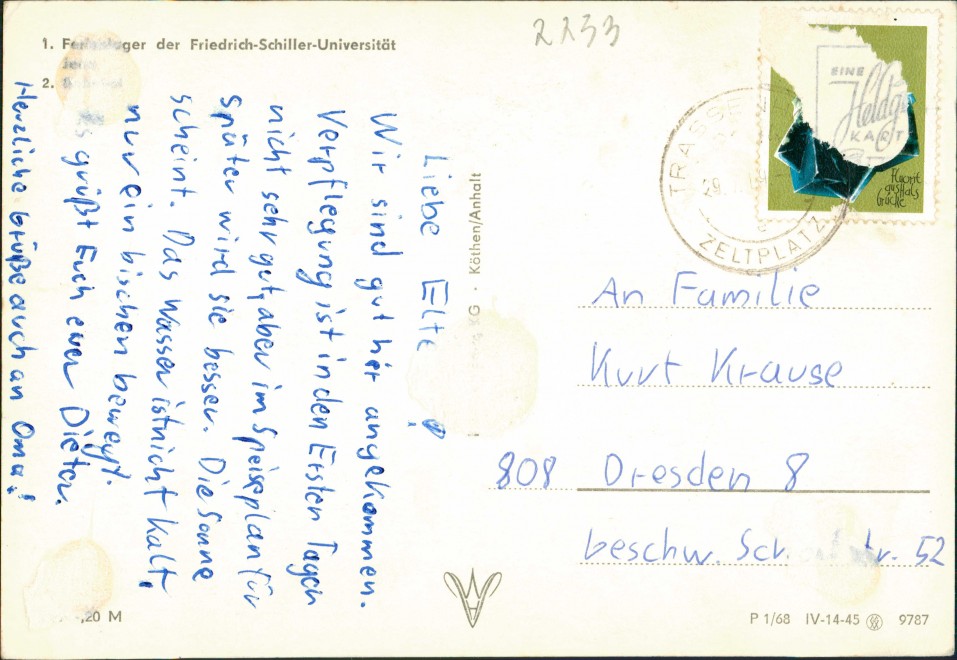 1. Ferienlager der Friedrich-Schiller-Universität
2.
2233
EINE
Heldg
KART
Fluorit
aus Hals
brücke
TRASSE
29.
ZELTPLATZ
Liebe Elte !
Wir sind gut her angekommen.
Verpflegung ist in den Ersten Tagen
nicht sehr gut, aber im Speiseplan für
später wird sie besser. Die Sonne
scheint. Das Wasser ist nicht kalt,
nur ein bischen bewegt.
grüßt Euch euer Dieter.
Herzliche Grüße auch an Oma!
KG · Köthen/Anhalt
An Familie
Kurt Krause
808 Dresden 8
beschw. Scr. str. 52
,20 M
P 1/68 IV-14-45 9787